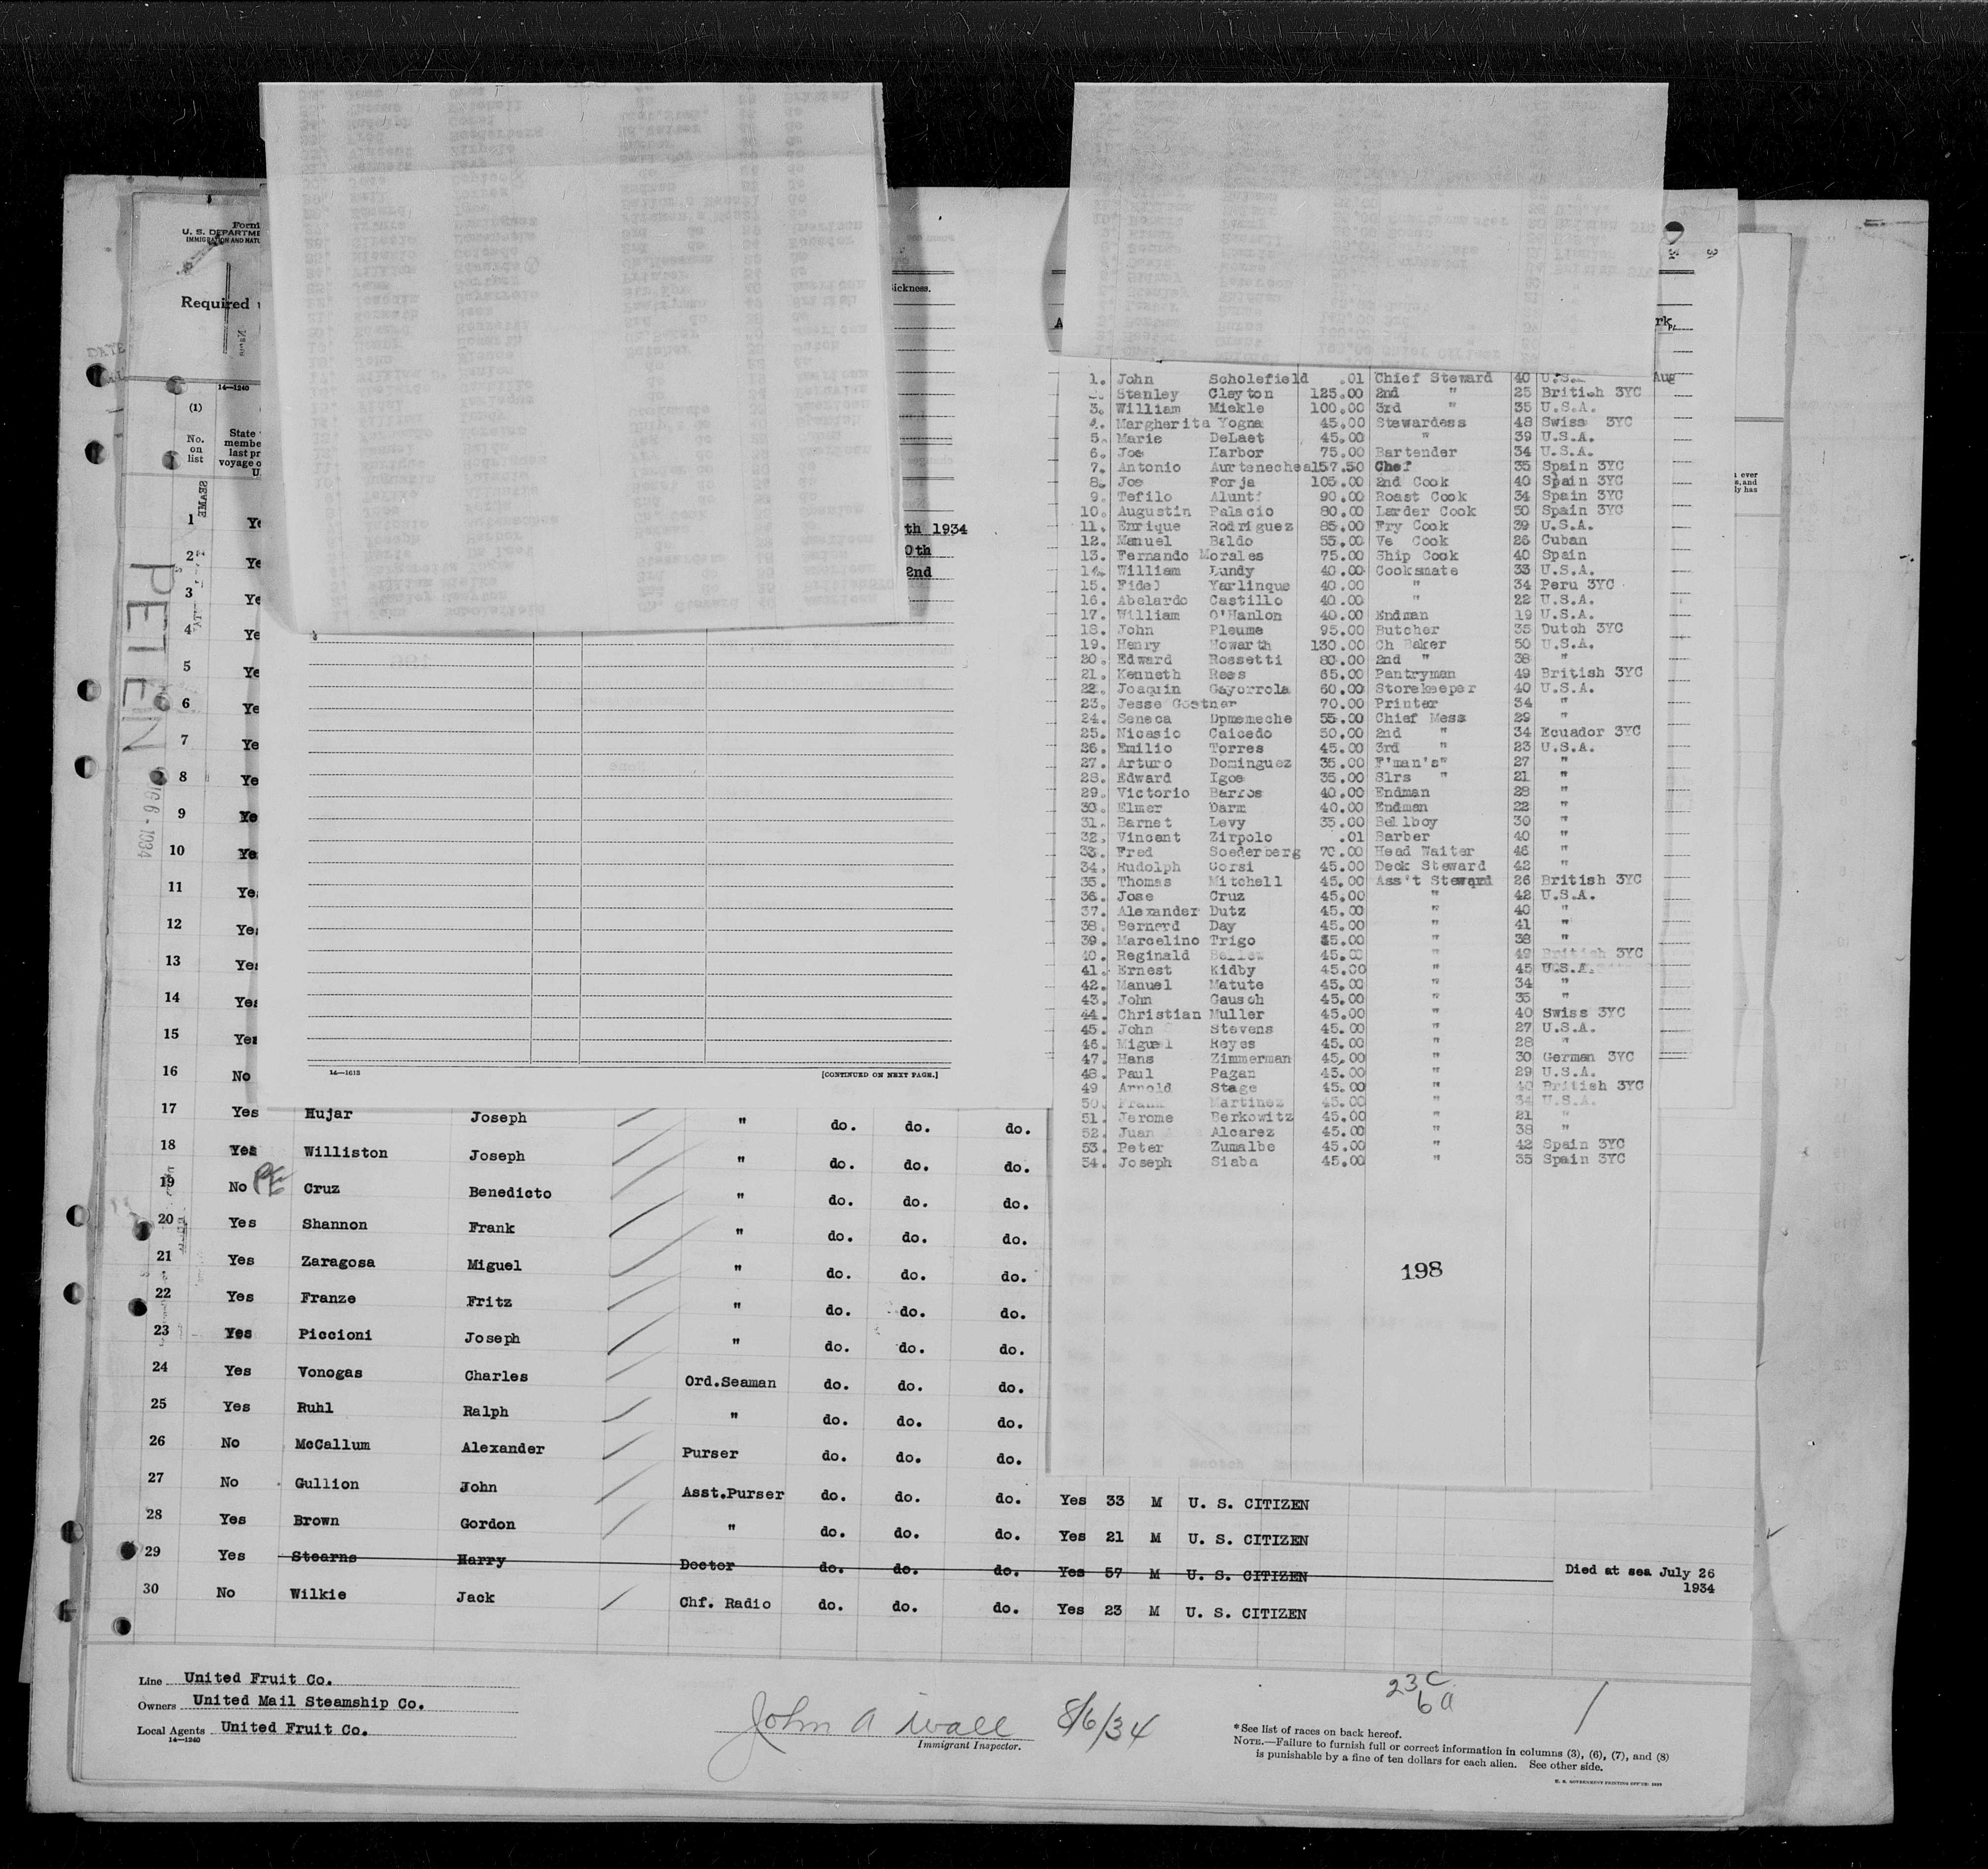 U. S. DEPARTME
Required
14—1240
(1)
No.
on
list
State
membe
last pr
voyage o
U.
PETEN
ickness.
th 1934
0th
2nd
14—1613
[CONTINUED ON NEXT PAGE.]
Aug
1. John Scholefield .01 Chief Steward 40 U.S.
Stanley Clayton 125.00 2nd " 25 British 3YC
3. William Miekle 100.00 3rd " 35 U.S.A.
4. Margherita Yogna 45.00 Stewardess 48 Swiss 3YC
5. Marie DeLaet 45.00 " 39 U.S.A.
6. Joe Harbor 75.00 Bartender 34 U.S.A.
7. Antonio Aurtenechea 157.50 Chef 35 Spain 3YC
8. Joe Forja 105.00 2nd Cook 40 Spain 3YC
9. Tefilo 90.00 Roast Cook 34 Spain 3YC
10. Augustin Palacio 80.00 Larder Cook 50 Spain 3YC
11. Enrique Rodriguez 85.00 Fry Cook 39 U.S.A.
12. Manuel Baldo 55.00 Ve Cook 26 Cuban
13. Fernando Morales 75.00 Ship Cook 40 Spain
14. William Lundy 40.00 Cooksmate 33 U.S.A.
15. Fidel Yarlinque 40.00 " 34 Peru 3YC
16. Abelardo Castillo 40.00 " 22 U.S.A.
17. William O'Hanlon 40.00 Endman 19 U.S.A.
18. John Pleume 95.00 Butcher 35 Dutch 3YC
19. Henry Howarth 130.00 Ch Baker 50 U.S.A.
20. Edward Rossetti 80.00 2nd " 38 "
21. Kenneth Rees 65.00 Pantryman 49 British 3YC
22. Joaquin Gayorrola 60.00 Storekeeper 40 U.S.A.
23. Jesse Gostner 70.00 Printer 34 "
24. Seneca Dpmemeche 55.00 Chief Mess 29 "
25. Nicasio Caicedo 50.00 2nd " 34 Ecuador 3YC
26. Emilio Torres 45.00 3rd " 23 U.S.A.
27. Arturo Dominguez 35.00 F'man's" 27 "
28. Edward Igoe 35.00 Slrs " 21 "
29. Victorio Barros 40.00 Endman 28 "
30. Elmer Darm 40.00 Endman 22 "
31. Barnet Levy 35.00 Bellboy 30 "
32. Vincent Zirpolo .01 Barber 40 "
33. Fred Soederberg 70.00 Head Waiter 46 "
34. Rudolph Corsi 45.00 Deck Steward 42 "
35. Thomas Mitchell 45.00 Ass't Steward 26 British 3YC
36. Jose Cruz 45.00 " 42 U.S.A.
37. Alexander Dutz 45.00 " 40 "
38. Bernard Day 45.00 " 41 "
39. Marcelino Trigo 45.00 " 38 "
40. Reginald 45.00 " 49 British 3YC
41. Ernest Kidby 45.00 " 45 U.S.A.
42. Manuel Matute 45.00 " 34 "
43. John Gausch 45.00 " 35 "
44. Christian Muller 45.00 " 40 Swiss 3YC
45. John Stevens 45.00 " 27 U.S.A.
46. Miguel Reyes 45.00 " 28 "
47. Hans Zimmerman 45.00 " 30 German 3YC
48. Paul Pagan 45.00 " 29 U.S.A.
49 Arnold Stage 45.00 " 40 British 3YC
50. Frank Martinez 45.00 " 34 U.S.A.
51. Jerome Berkowitz 45.00 " 21 "
52. Juan Alcarez 45.00 " 38 "
53. Peter Zumalbe 45.00 " 42 Spain 3YC
54. Joseph Siaba 45.00 " 35 Spain 3YC
198
1 Ye
2 Ye
3 Ye
4 Ye
5 Ye
6 Ye
7 Ye
8 Ye
9 Ye
10 Ye
11 Ye
12 Ye
13 Ye
14 Ye
15 Ye
16 No
17 Yes Hujar Joseph " do. do. do.
18 Yes Williston Joseph " do. do. do.
19 No Cruz Benedicto " do. do. do.
20 Yes Shannon Frank " do. do. do.
21 Yes Zaragosa Miguel " do. do. do.
22 Yes Franze Fritz " do. do. do.
23 Yes Piccioni Joseph " do. do. do.
24 Yes Vonogas Charles Ord.Seaman do. do. do.
25 Yes Ruhl Ralph " do. do. do.
26 No McCallum Alexander Purser do. do. do.
27 No Gullion John Asst.Purser do. do. do. Yes 33 M U. S. CITIZEN
28 Yes Brown Gordon " do. do. do. Yes 21 M U. S. CITIZEN
29 Yes Stearns Harry Doctor do. do. do. Yes 57 M U. S. CITIZEN Died at sea July 26 1934
30 No Wilkie Jack Chf. Radio do. do. do. Yes 23 M U. S. CITIZEN
Line United Fruit Co.
Owners United Mail Steamship Co.
Local Agents United Fruit Co.
14—1240
John A Wall 8/6/34
Immigrant Inspector.
23C
6a
*See list of races on back hereof.
NOTE.—Failure to furnish full or correct information in columns (3), (6), (7), and (8)
is punishable by a fine of ten dollars for each alien. See other side.